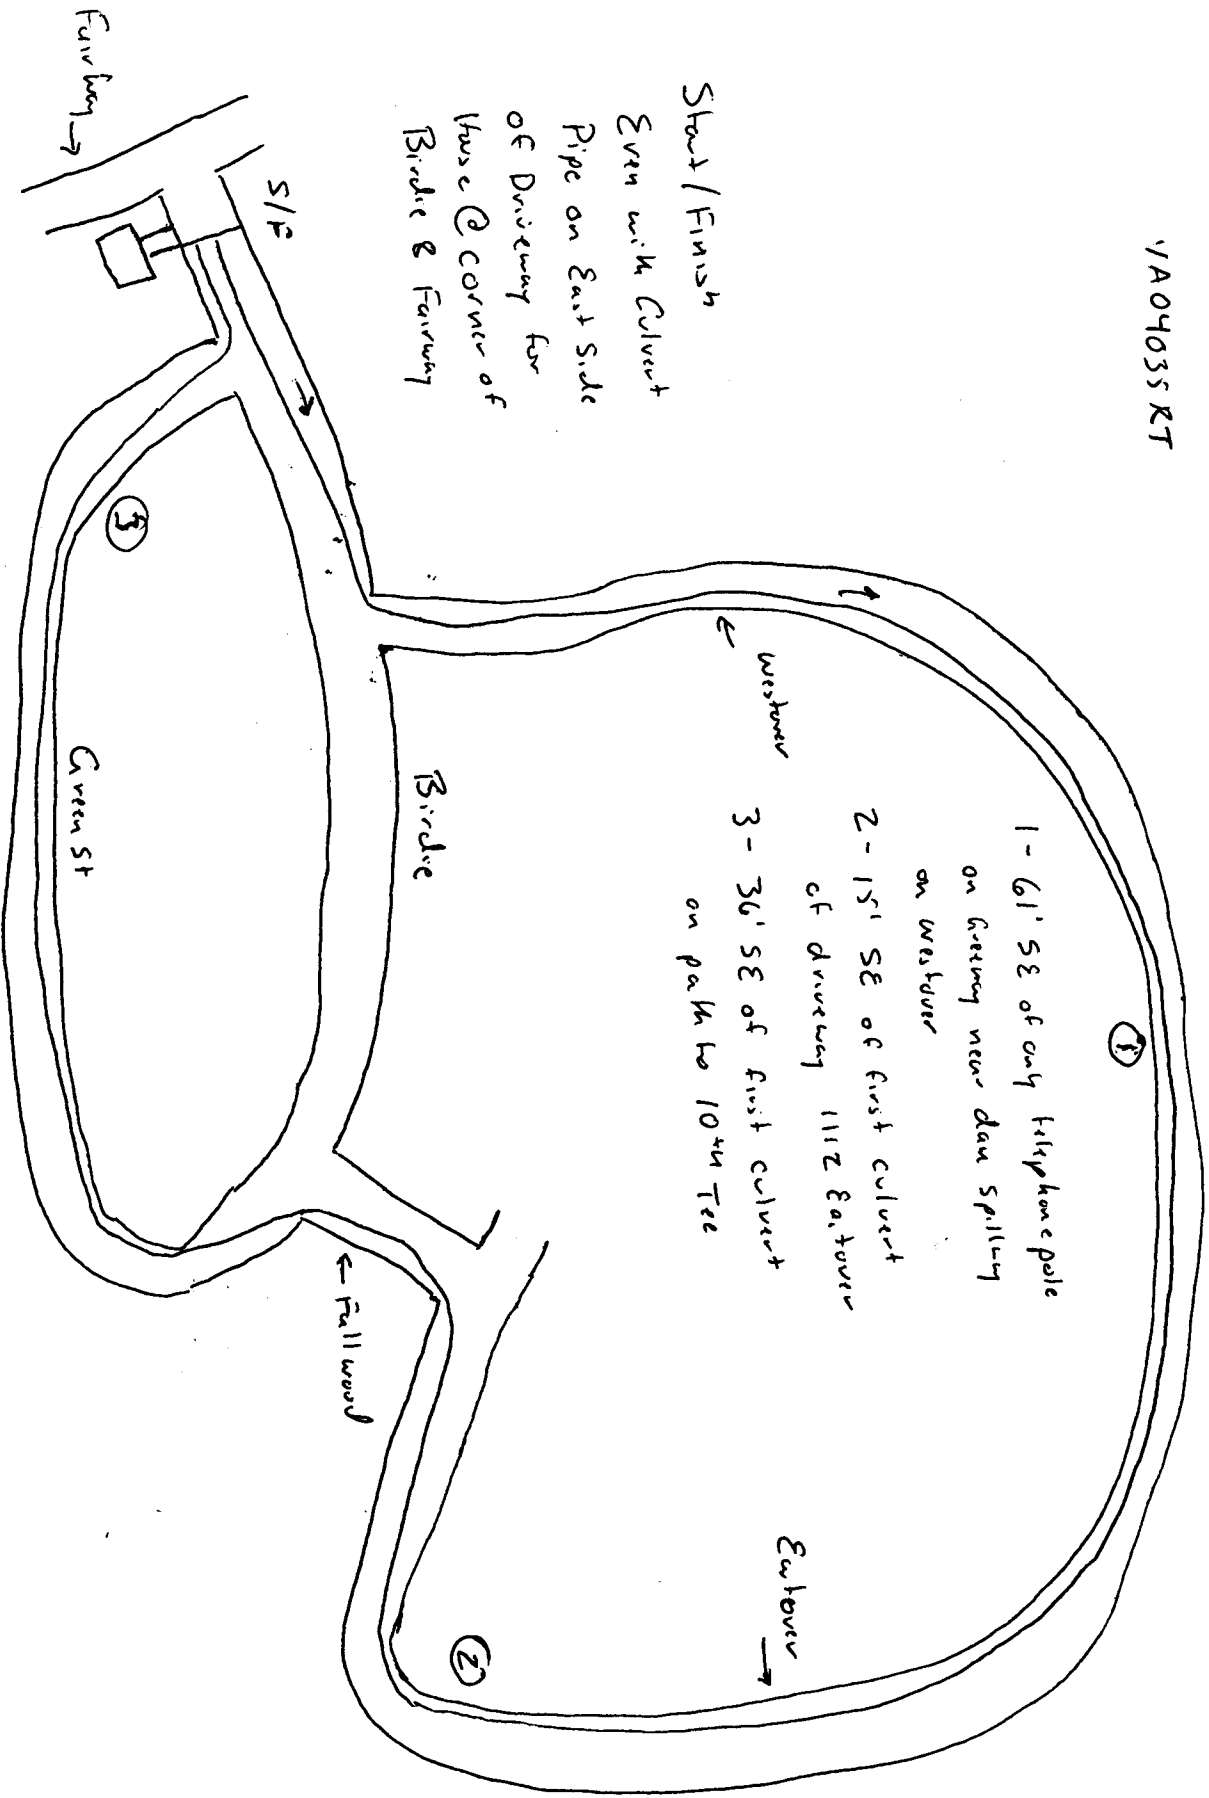 VA04035RT
Start/Finish
Even with Culvert
Pipe on East Side
of Driveway for
House @ corner of
Birdie & Fairway
Fairway →
S/F
1 - 61' SE of only telephone pole
on Greenway near dam spillway
on westover
2 - 15' SE of first culvert
of driveway 1112 Eastover
3 - 36' SE of first culvert
on path to 10th Tee
← westover
Eastover →
Birdie
Green St
← Fallwood
1
2
3